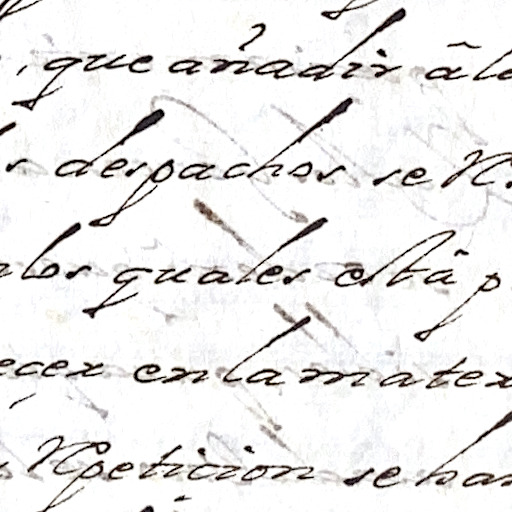 , que añadir â lo
s despachos se N.
nlos quales està p
eçer en la mater
Npeticion se han